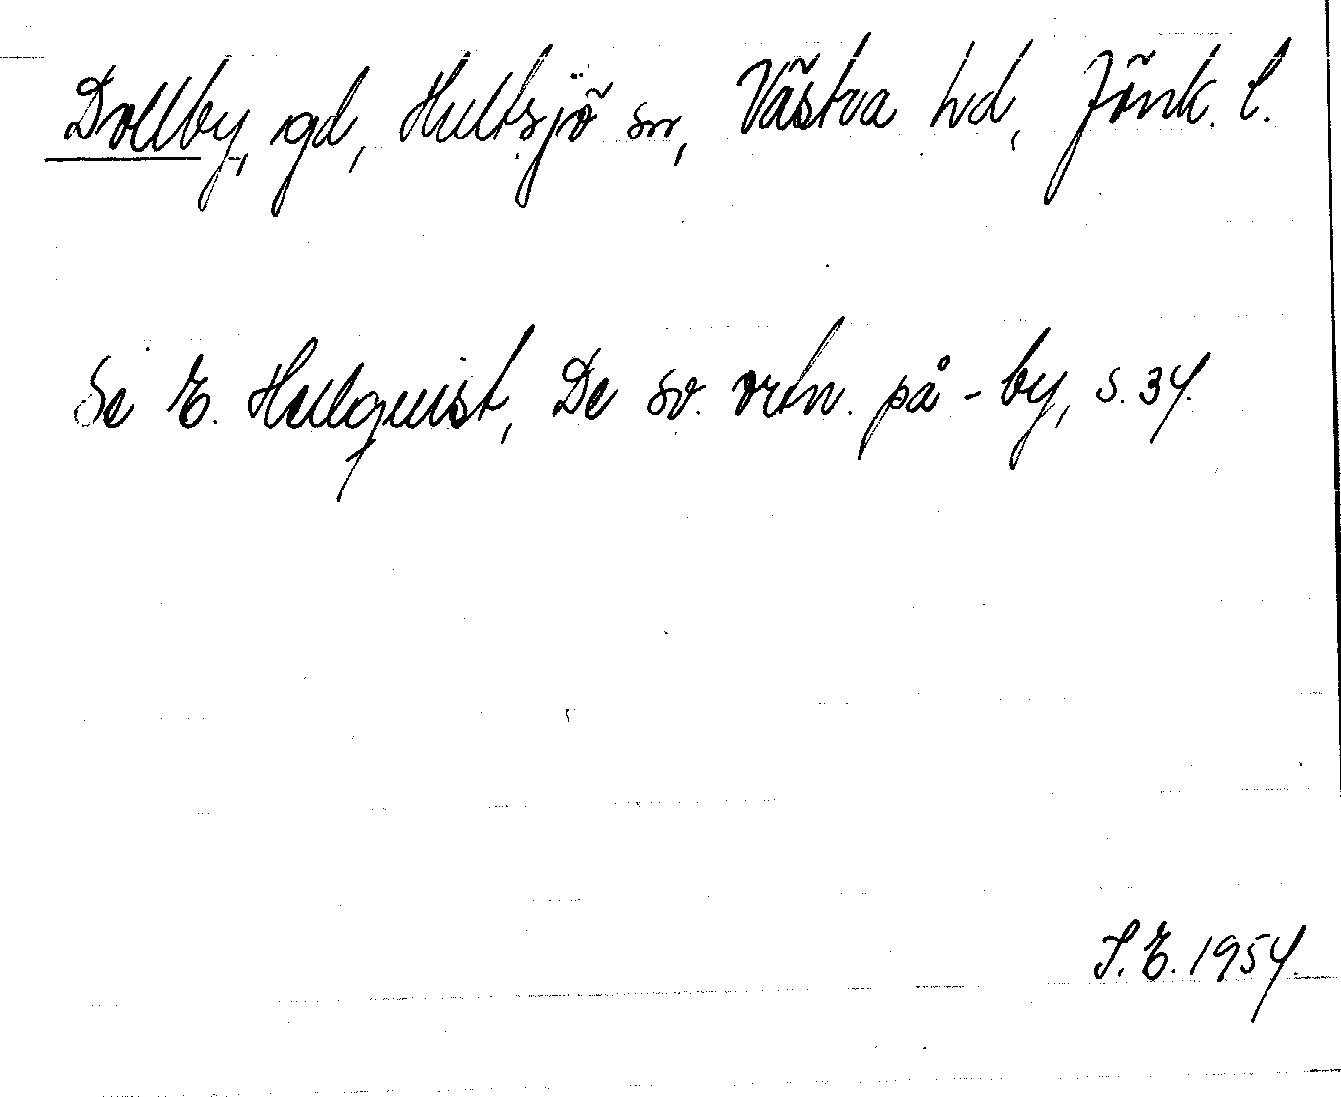 Dollby, gd, Hultsjö sn, Västra hd, Jönk. l.
Se E. Hellquist, De sv. ortn. på -by, s. 34.
S. E. 1954.